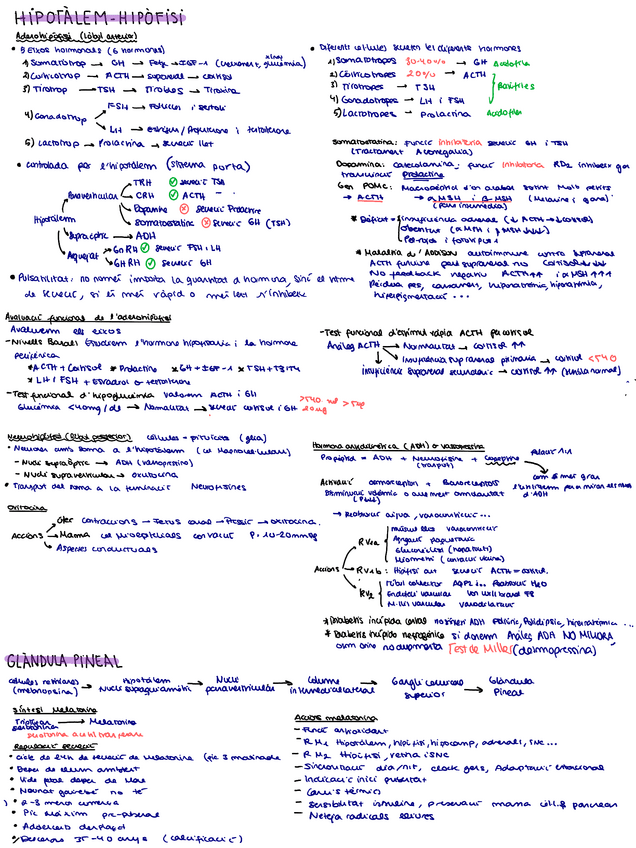 HIPOTÀLEM-HIPÒFISI
Adenohipòfisi (lòbul anterior)
• 5 eixos hormonals (6 hormones)
1) Somatotrop → GH → Fetge → IGF-1
2) Corticotrop → ACTH → suprarenal → cortisol
3) Tirotrop → TSH → Tiroides → Tiroxina
4) Gonadotrop
FSH → Fol·licles i Sertoli
LH →
5) Lactotrop → Prolactina → secreció llet
• controlada per l'hipotàlem (sistema porta)
Hipotàlem
TRH secreció TSH
CRH ACTH
Dopamina secreció Prolactina
Somatostatina secreció GH (TSH)
Supraòptic → ADH
GnRH secreció FSH i LH
GHRH secreció GH
• Pulsatilitat: no només importa la quantitat d'hormona, sinó el ritme
de secreció, si és més ràpid o més lent s'inhibeix
• Diferents cèl·lules secreten les diferents hormones
1) Somatotropes 30-40% → GH Acidòfiles
2) Corticotropes 20% → ACTH
3) Tirotropes → TSH
Basòfiles
4) Gonadotropes → LH i FSH
5) Lactotropes → Prolactina Acidòfiles
Somatostatina: funció inhibitòria secreció GH i TSH
(Tractament Acromegàlia)
Dopamina: catecolamina, funció inhibitòria RD2 inhibeix gen
transcripció Prolactina
Gen POMC:
→ ACTH → α MSH i β-MSH
(pars intermèdia)
* Dèficit = insuficiència adrenal (↓ ACTH → ↓ cortisol)
Obesitat
Pèl-roja i fototipus 1
* Malaltia d'Addison autoimmune contra suprarenal
No feedback negatiu ACTH ↑↑ i α MSH ↑↑↑
Pèrdua pes, cansament, hiponatrèmia, hipotensió,
hiperpigmentació ...
Avaluació funcional de l'adenohipòfisi
Avaluarem els eixos
-Nivells Basals Estudiem l'hormona hipofisària i la hormona
perifèrica
* ACTH + Cortisol * Prolactina * GH + IGF-1 * TSH + T3 i T4
* LH i FSH + Estradiol o testosterona
-Test funcional d'hipoglucèmia valorem ACTH i GH
Glucèmia <40mg/dl → Normalitat → secreció cortisol i GH
-Test funcional d'estímul ràpid ACTH per cortisol
Anàleg ACTH → Normalitat → cortisol ↑↑
Insuficiència suprarenal primària → cortisol <540
insuficiència suprarenal secundària → cortisol ↑↑
Neurohipòfisi (lòbul posterior) cèl·lules = pituïcits (glia)
• Neurones amb soma a l'hipotàlem (cèl Magnocel·lulars)
- Nucli supraòptic → ADH (vasopressina)
- Nucli supraventricular → oxitocina
• Transport del soma a la terminació Neurofisines
Oxitocina
Accions
Úter contraccions → Fetus cervix → Pressió → oxitocina.
Mama cèl mioepitelials contracció P. 10-20mmHg
Aspectes conductuals
Hormona antidiürètica (ADH) o vasopressina
Prepèptid = ADH + Neurofisina + Copeptina
(transport)
relació 1:1
Activació osmoreceptors + Baroreceptors
Disminució volèmia o augment osmolaritat
→ Reabsorció aigua, vasoconstricció ...
Accions
RV1a
múscul llis vasoconstricció
Agregació plaquetària
Glucogenòlisi (hepatòcits)
Miometri (contracció uterina)
RV1b: Hipòfisi ant secreció ACTH = cortisol.
RV2
Túbul col·lector AQP2 ... Reabsorció H2O
Endoteli vascular Von Willebrand F8
M. llis vascular vasodilatació
* Diabetis insípida central no síntesi ADH Poliúria, Polidípsia, hipernatrèmia ...
* Diabetis insípida nefrogènica si donem Anàleg ADH NO MILLORA,
osm orina no augmenta Test de Miller (desmopressina)
GLÀNDULA PINEAL
cèl·lules retinianes (melanopsina) → Hipotàlem Nucli supraquiasmàtic → Nucli paraventricular → Columna intermediolateral → Gangli cervical superior → Glàndula Pineal
Síntesi Melatonina
Triptòfan → Melatonina
serotonina
serotonina acetil transferasa
Regulació secreció
• Cicle de 24h de secreció de melatonina (pic 3 matinada)
• Depèn de llum ambient
• Vida fetal depèn de mare
• Nounat gairebé no té
• 2-3 mesos comença
• Pic màxim pre-puberal
• Adolescència desplaçat
• Descens 35-40 anys (calcificació)
Accions melatonina
- Funció antioxidant
- R M1 Hipotàlem, hipòfisi, hipocamp, adrenals, SNC...
- R M2 Hipòfisi, retina i SNC
- Sincronització dia/nit, clock gens, Adaptació estacional
- Indicació inici pubertat
- Canvis tèrmics
- Sensibilitat insulina, preservació massa cèl·l β pàncrees
- Neteja radicals lliures